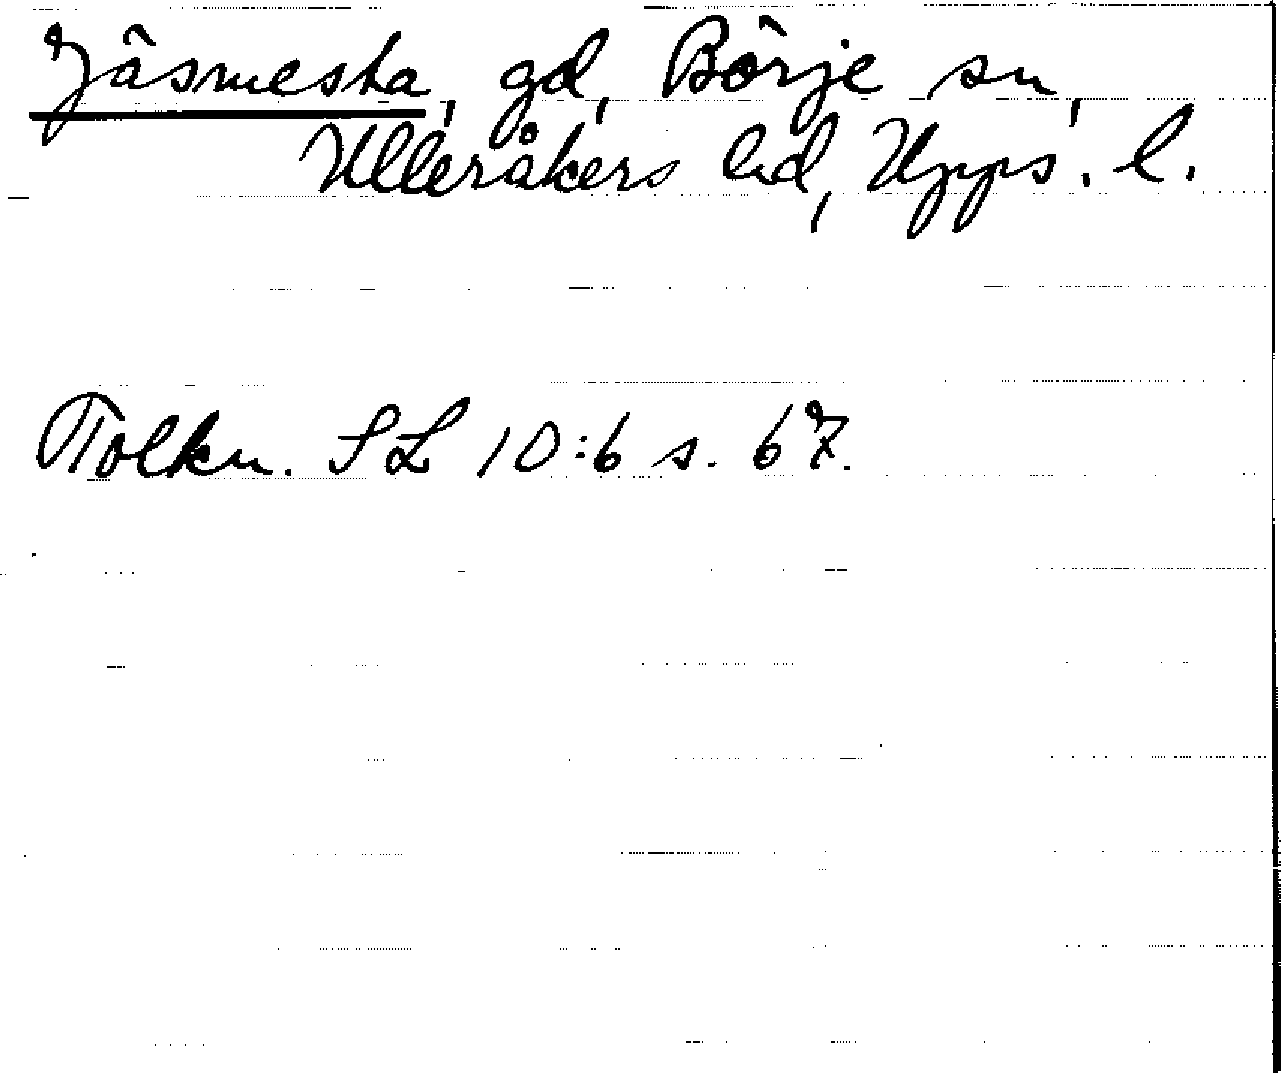 Jäsmesta, gd, Börje sn,
Ulleråkers hd, Upps. l.
Tolkn. SL 10:6 s. 67.